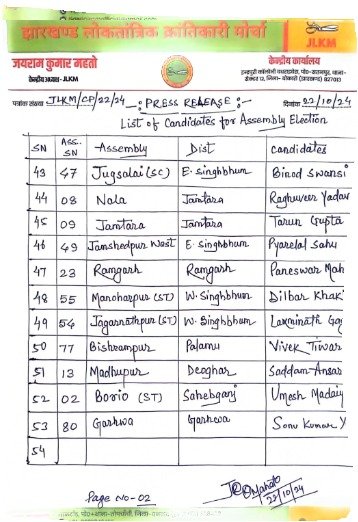 झारखण्ड लोकतांत्रिक क्रांतिकारी मोर्चा
JLKM
जयराम कुमार महतो
केन्द्रीय अध्यक्ष-JLKM
केन्द्रीय कार्यालय
पत्रांक संख्या JLKM/CP/22/24
:PRESS RELEASE:
दिनांक 22/10/24
List of Candidates for Assembly Election
SN ASS. SN Assembly Dist Candidates
43 47 Jugsalai (SC) E. Singhbhum Binod Swansi
44 08 Nala Jamtara Raghuveer Yadav
45 09 Jamtara Jamtara Tarun Gupta
46 49 Jamshedpur West E. Singhbhum Pyarelal Sahu
47 23 Ramgarh Ramgarh Paneswar Mah
48 55 Manoharpur (ST) W. Singhbhum Dilbar Khak
49 54 Jagarnathpur (ST) W. Singhbhum Laxminath Gag
50 77 Bishrampur Palamu Vivek Tiwar
51 13 Madhupur Deoghar Saddam Ansar
52 02 Borio (ST) Sahebganj Umesh Madaiy
53 80 Garhwa Garhwa Sonu Kumar Y
54
Page No-02
22/10/24